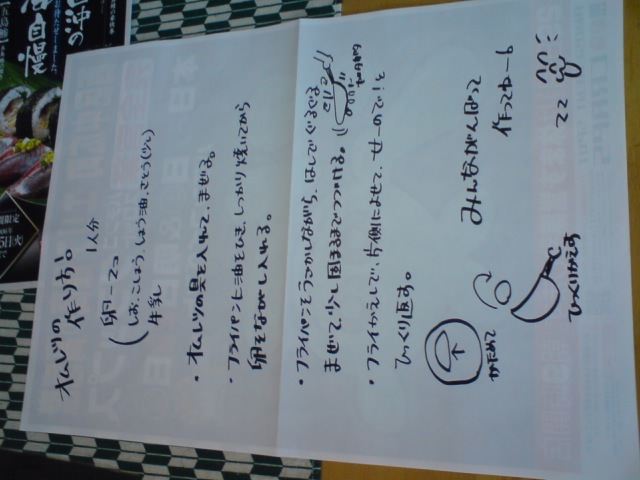 オムレツの
作り方!
1人分
卵-2コ
(しお、こしょう、しょう油、さとう(少し)
牛乳
・オムレツの具を入れて、まぜる。
・フライパンに油をひき、しっかり焼いてから
卵をながし入れる。
・フライパンをうごかしながら、はしでぐるぐる
まぜて、少し固まるまでつづける。
・フライがえしで、片側によせて、せーので!と
ひっくり返す。
かためて
ひっくりかえす
みんながんばって
作ってねー!
自慢